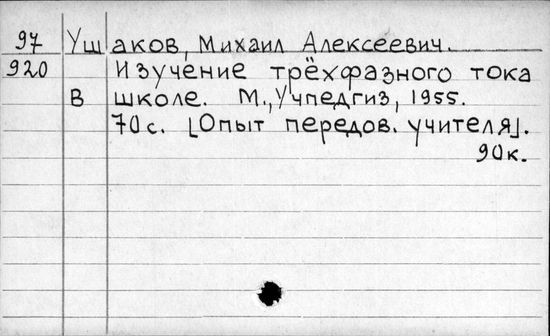 97 Ушаков, Михаил Алексеевич.
920 Изучение трёхфазного тока
в школе. М., Учпедгиз, 1955.
70 с. [Опыт передов. учителя].
90к.